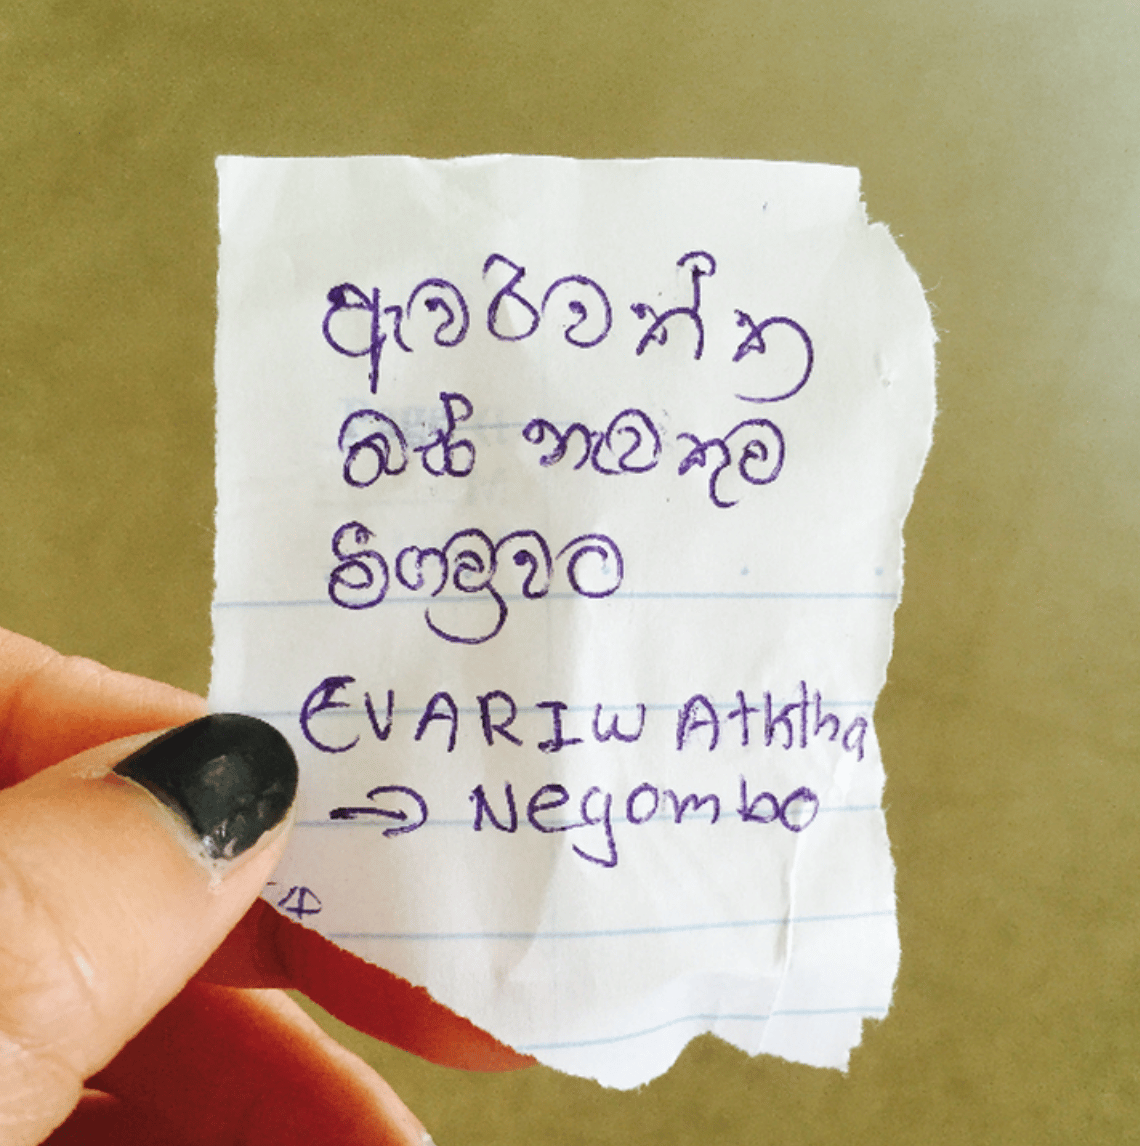 ඇවරිවත්ත
බස් නැවතුම
මීගමුවට
EVARIW Aththa
→ Negombo